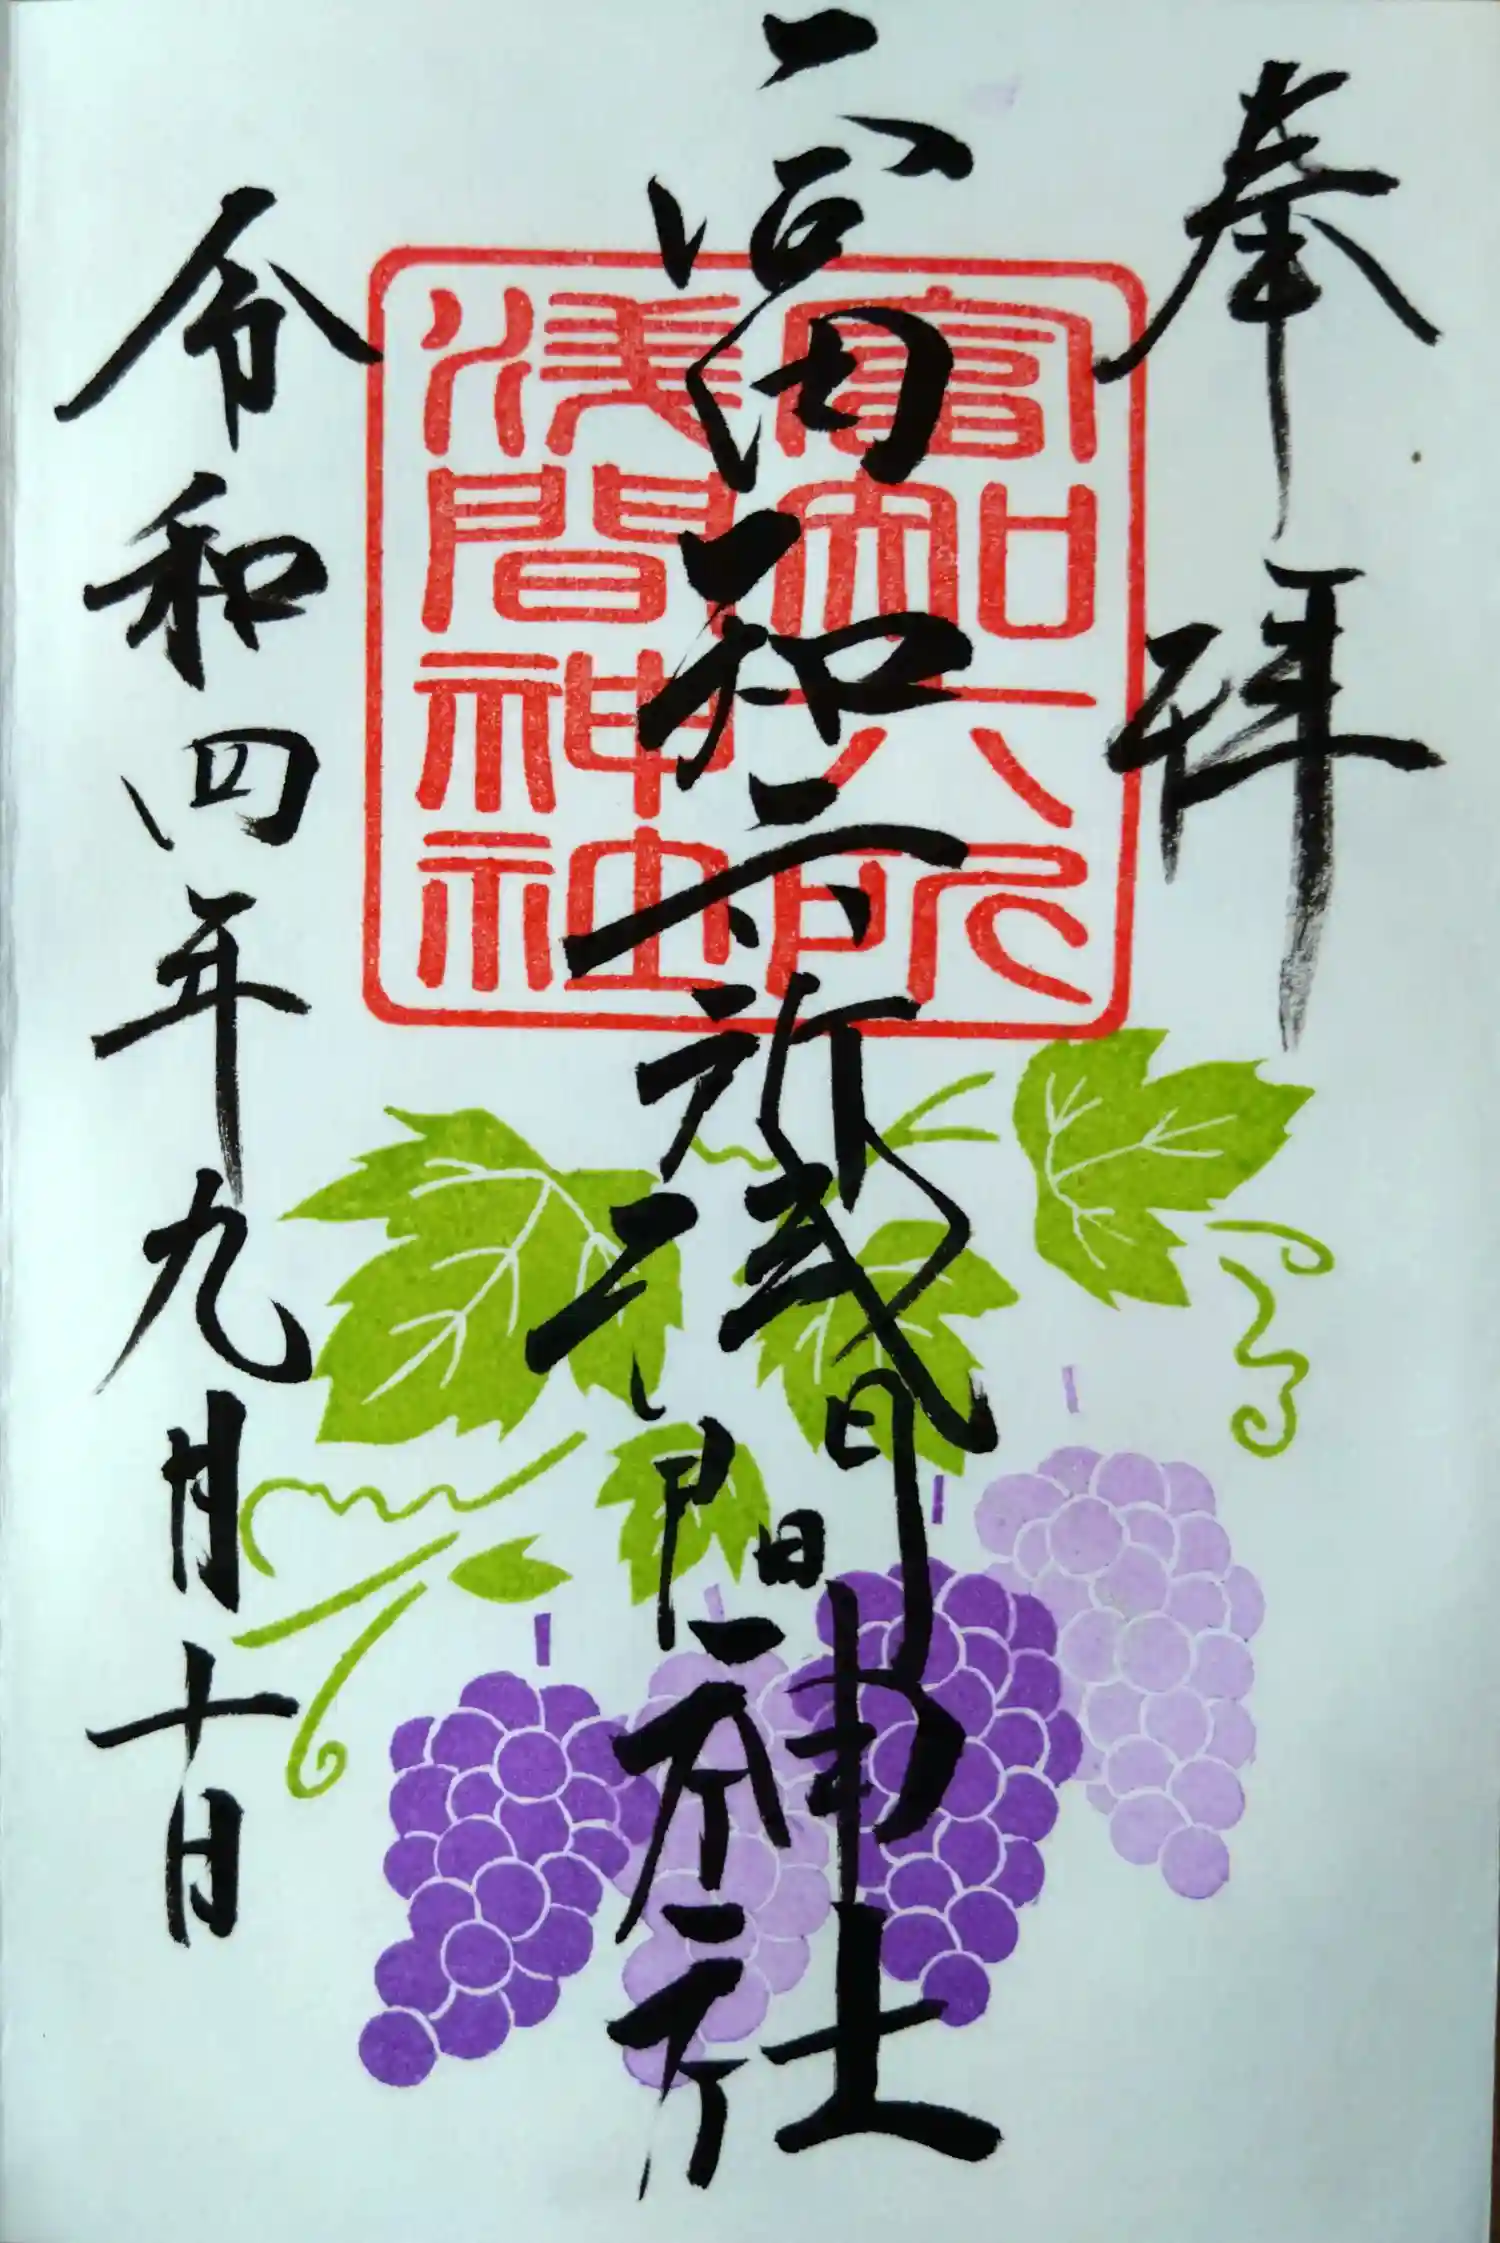 奉拝
富知六所浅間神社
令和四年九月十日
富知六所
浅間神社